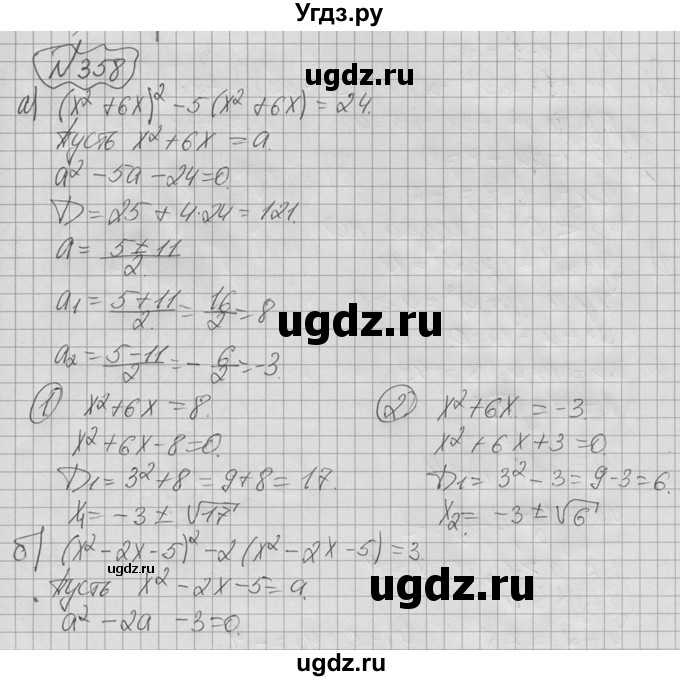 Угдз.ру
№358
а) (x² + 6x)² - 5(x² + 6x) = 24.
Пусть x² + 6x = a.
a² - 5a - 24 = 0.
D = 25 + 4·24 = 121.
a = (5 ± 11)/2.
a₁ = (5+11)/2 = 16/2 = 8
a₂ = (5-11)/2 = -6/2 = -3.
ugdz.ru
① x² + 6x = 8.
x² + 6x - 8 = 0.
D₁ = 3² + 8 = 9 + 8 = 17.
x₁ = -3 ± √17
② x² + 6x = -3.
x² + 6x + 3 = 0.
D₁ = 3² - 3 = 9 - 3 = 6.
x₂ = -3 ± √6
б) (x² - 2x - 5)² - 2(x² - 2x - 5) = 3.
ugdz.ru
Пусть x² - 2x - 5 = a.
ugdz.ru
a² - 2a - 3 = 0.
ugdz.ru